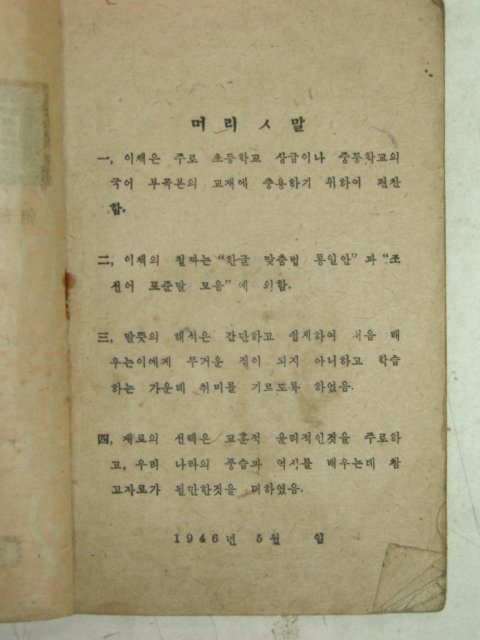 머리ㅅ말
一, 이책은 주로 초등학교 상급이나 중등학교의
국어 부독본의 교재에 충용하기 위하여 편찬
함.
二, 이책의 철자는 “한글 맞춤법 통일안”과 “조
선어 표준말 모음”에 의함.
三, 말뜻의 해석은 간단하고 쉽게하여 처음 배
우는이에게 무거운 짐이 되지 아니하고 학습
하는 가운데 취미를 기르도록 하였음.
四, 재료의 선택은 교훈적 윤리적인것을 주로하
고, 우리 나라의 풍습과 역사를 배우는데 참
고자료가 될만한것을 더하였음.
1946년 5월 일